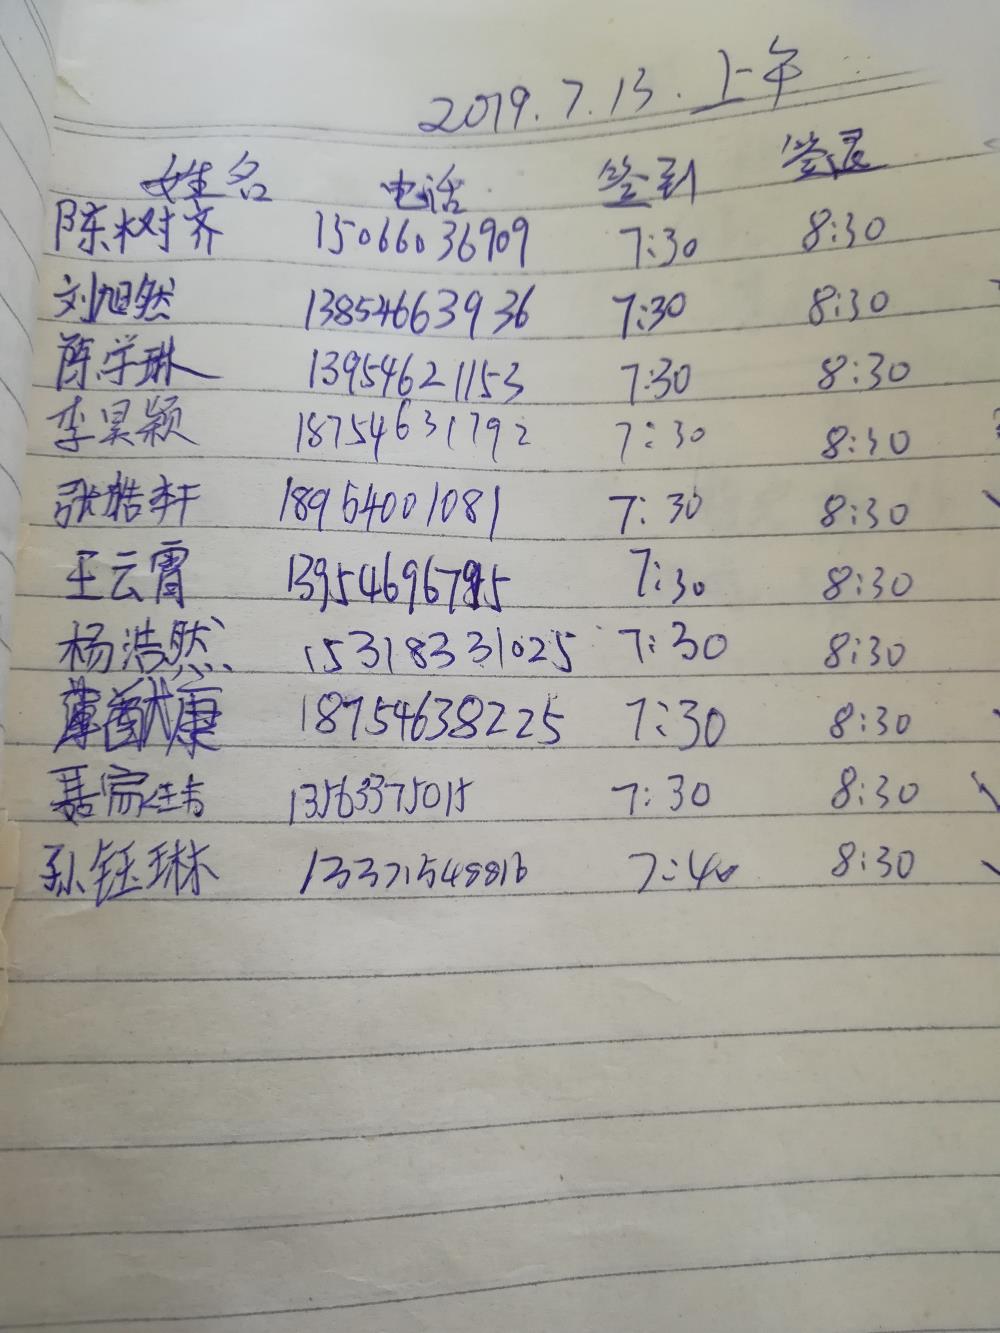 2019.7.13.上午
姓名 电话 签到 签退
陈树齐 15066036909 7:30 8:30
刘旭然 13854663936 7:30 8:30
陈学琳 13954621153 7:30 8:30
李昊颖 18754631792 7:30 8:30
张皓轩 18954001081 7:30 8:30
王云霄 7:30 8:30
杨浩然 15318331025 7:30 8:30
康 18754638225 7:30 8:30
13563375015 7:30 8:30
孙钰琳 13371548816 7:40 8:30